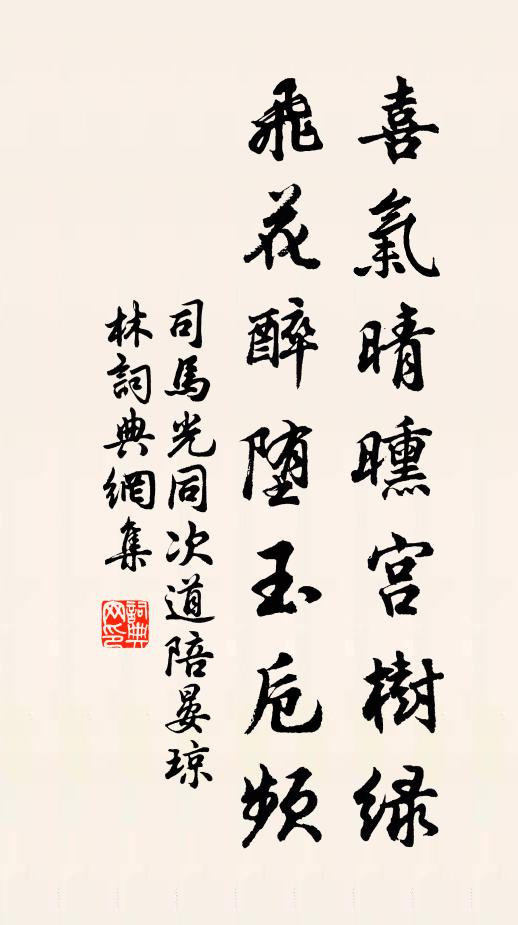 喜氣晴曛宮樹绿
飛花醉堕玉卮頻
司馬光同次道陪晏琼
林詞典網集
詞典
网印